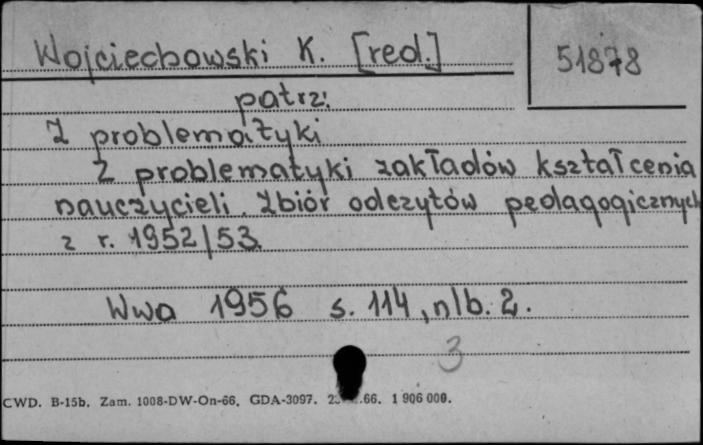 Wojciechowski K. [red.]
51878
patrz:
Z problematyki
Z problematyki zakładów kształcenia
nauczycieli. Zbiór odczytów pedagogicznych
z r. 1952/53.
Wwa 1956 s. 114, nlb. 2.
3
CWD. B-15b. Zam. 1008-DW-On-66. GDA-3097. .66. 1 906 000.